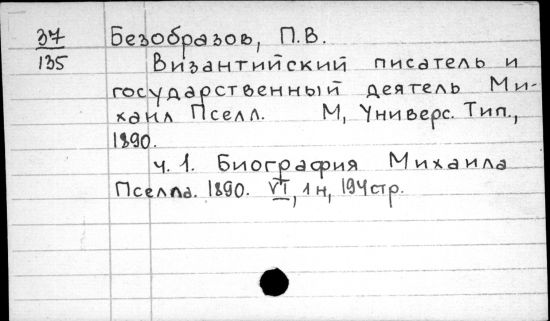 37 Безобразов, П.В.
135 Византийский писатель и
государственный деятель Ми-
хаил Пселл. М, Универс. Тип.,
1890.
ч. 1. Биография Михаила
Пселла. 1890. VI, 1н, 194стр.